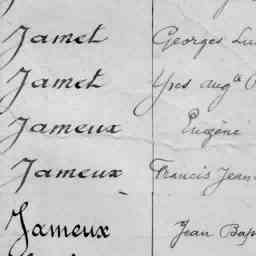 Jamet Georges Lu
Jamet Yves Aug^te
Jameux Eugène
Jameux Francis Jean
Jameux Jean Bap